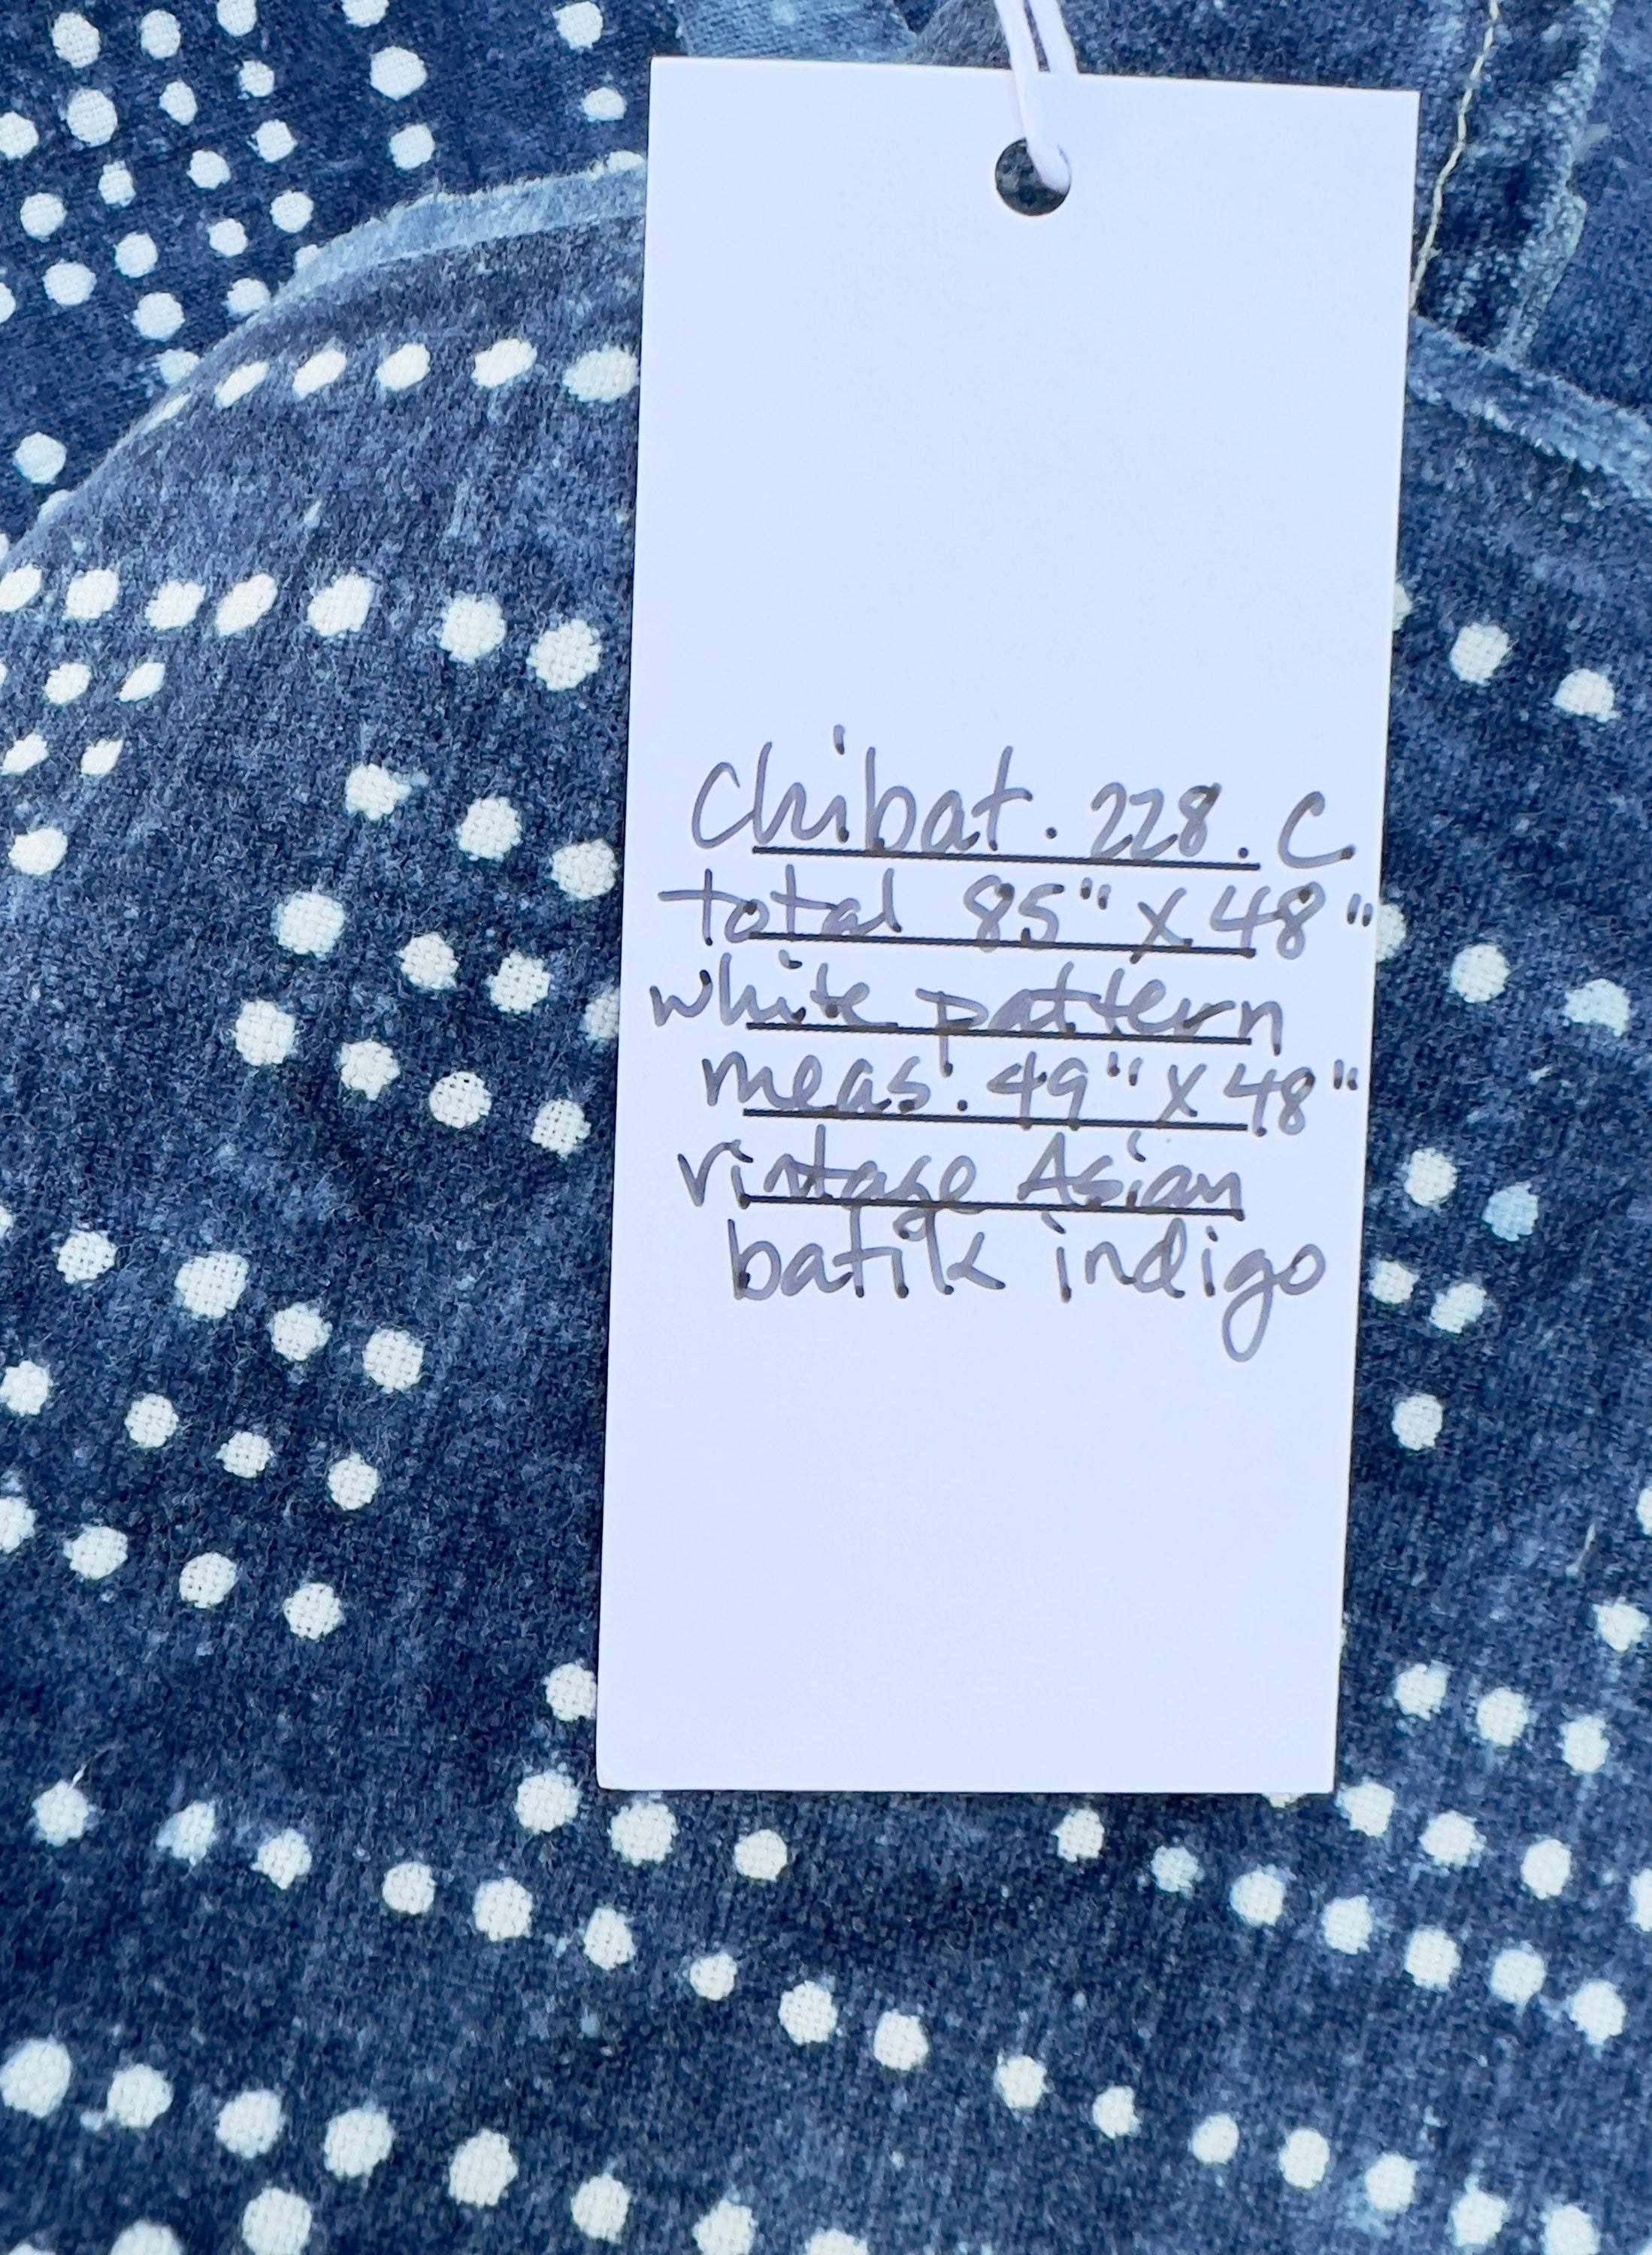 Chibat. 228. C
total 85" x 48"
white pattern
meas. 49" x 48"
vintage Asian
batik indigo